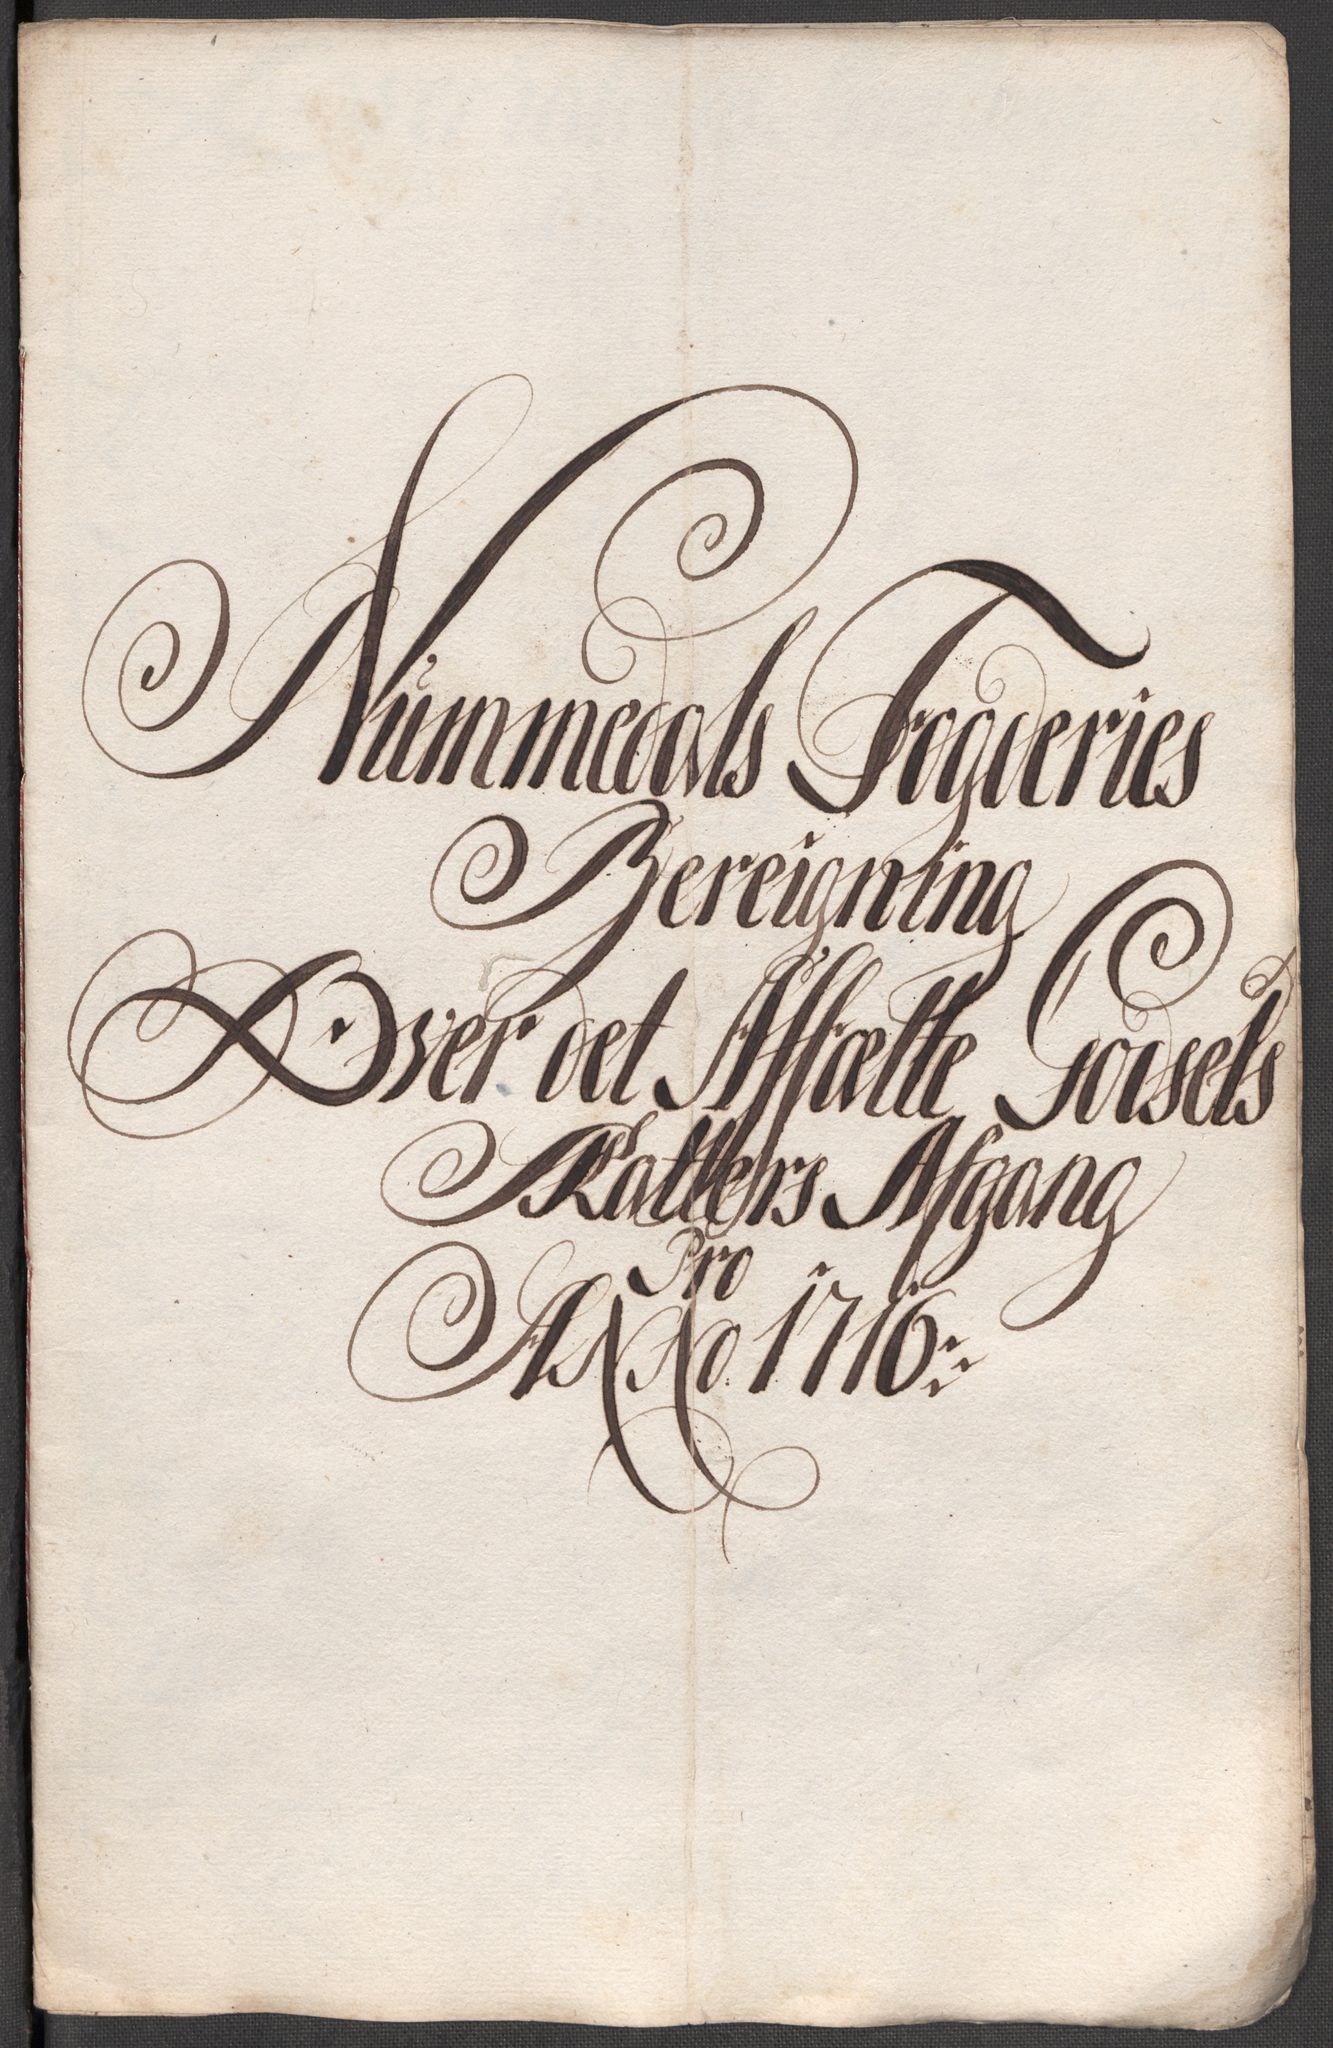 Nummedals Fogderies
Bereigning
Over det Affælte Godsels
Skatters Afgang
Pro
ANNo. 1716